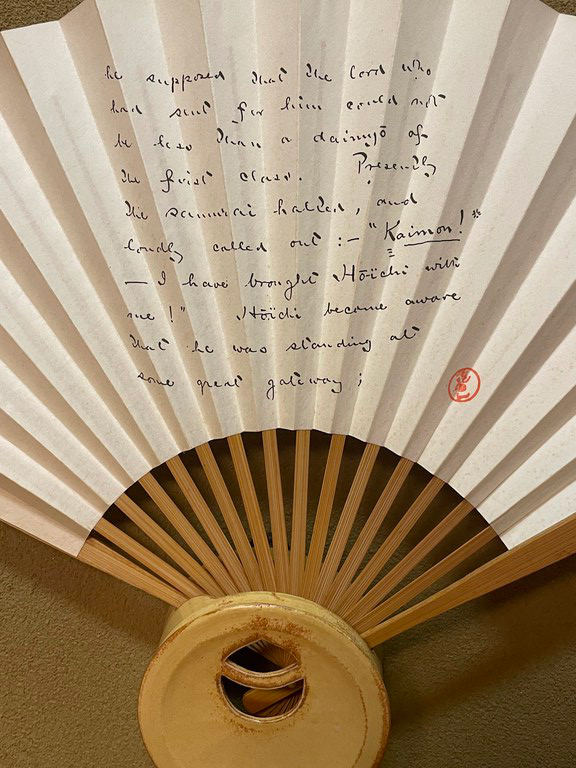 he supposed that the lord who
had sent for him could not
be less than a daimyō of
the first class. Presently
the samurai halted, and
loudly called out :— "Kaimon!*
— I have brought Hōïchi with
me!" Hōïchi became aware
that he was standing at
some great gateway ;